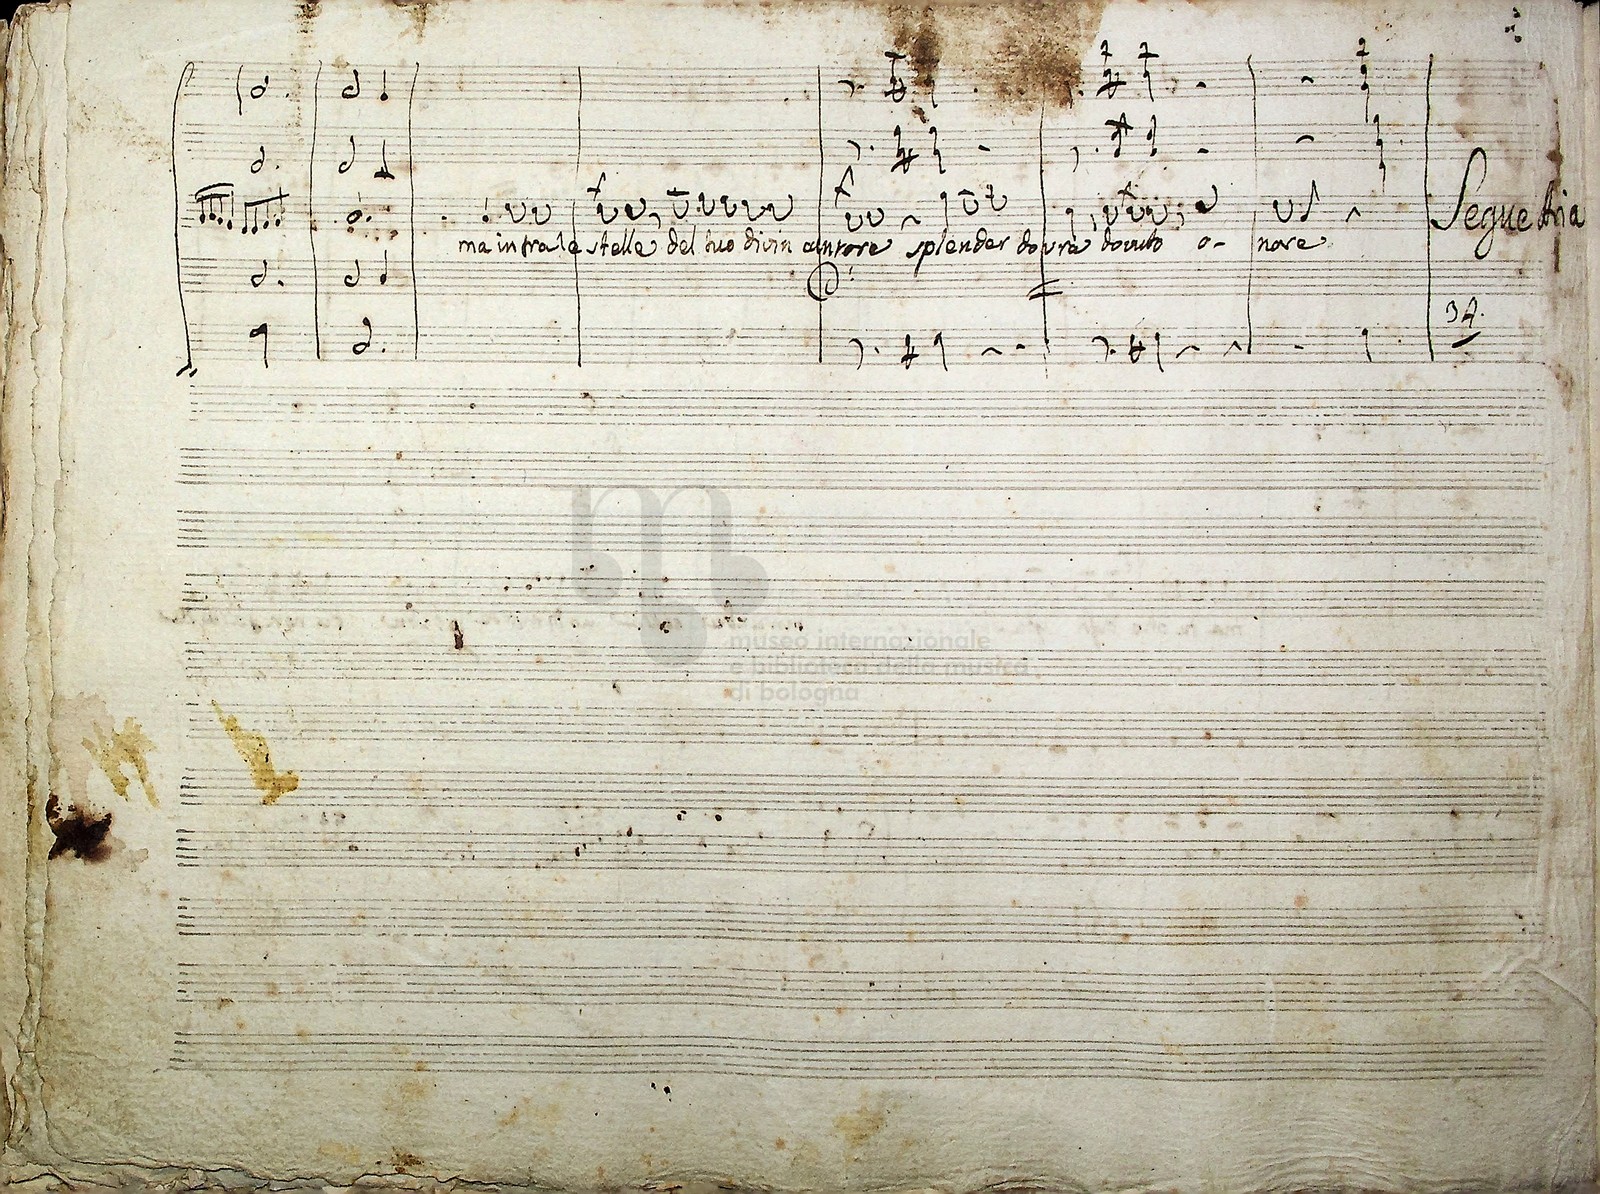 ma in fra le stelle del tuo divin cantore splender dovrà dovuto o- nore
Segue Aria
34.
museo internazionale
e biblioteca della musica
di bologna